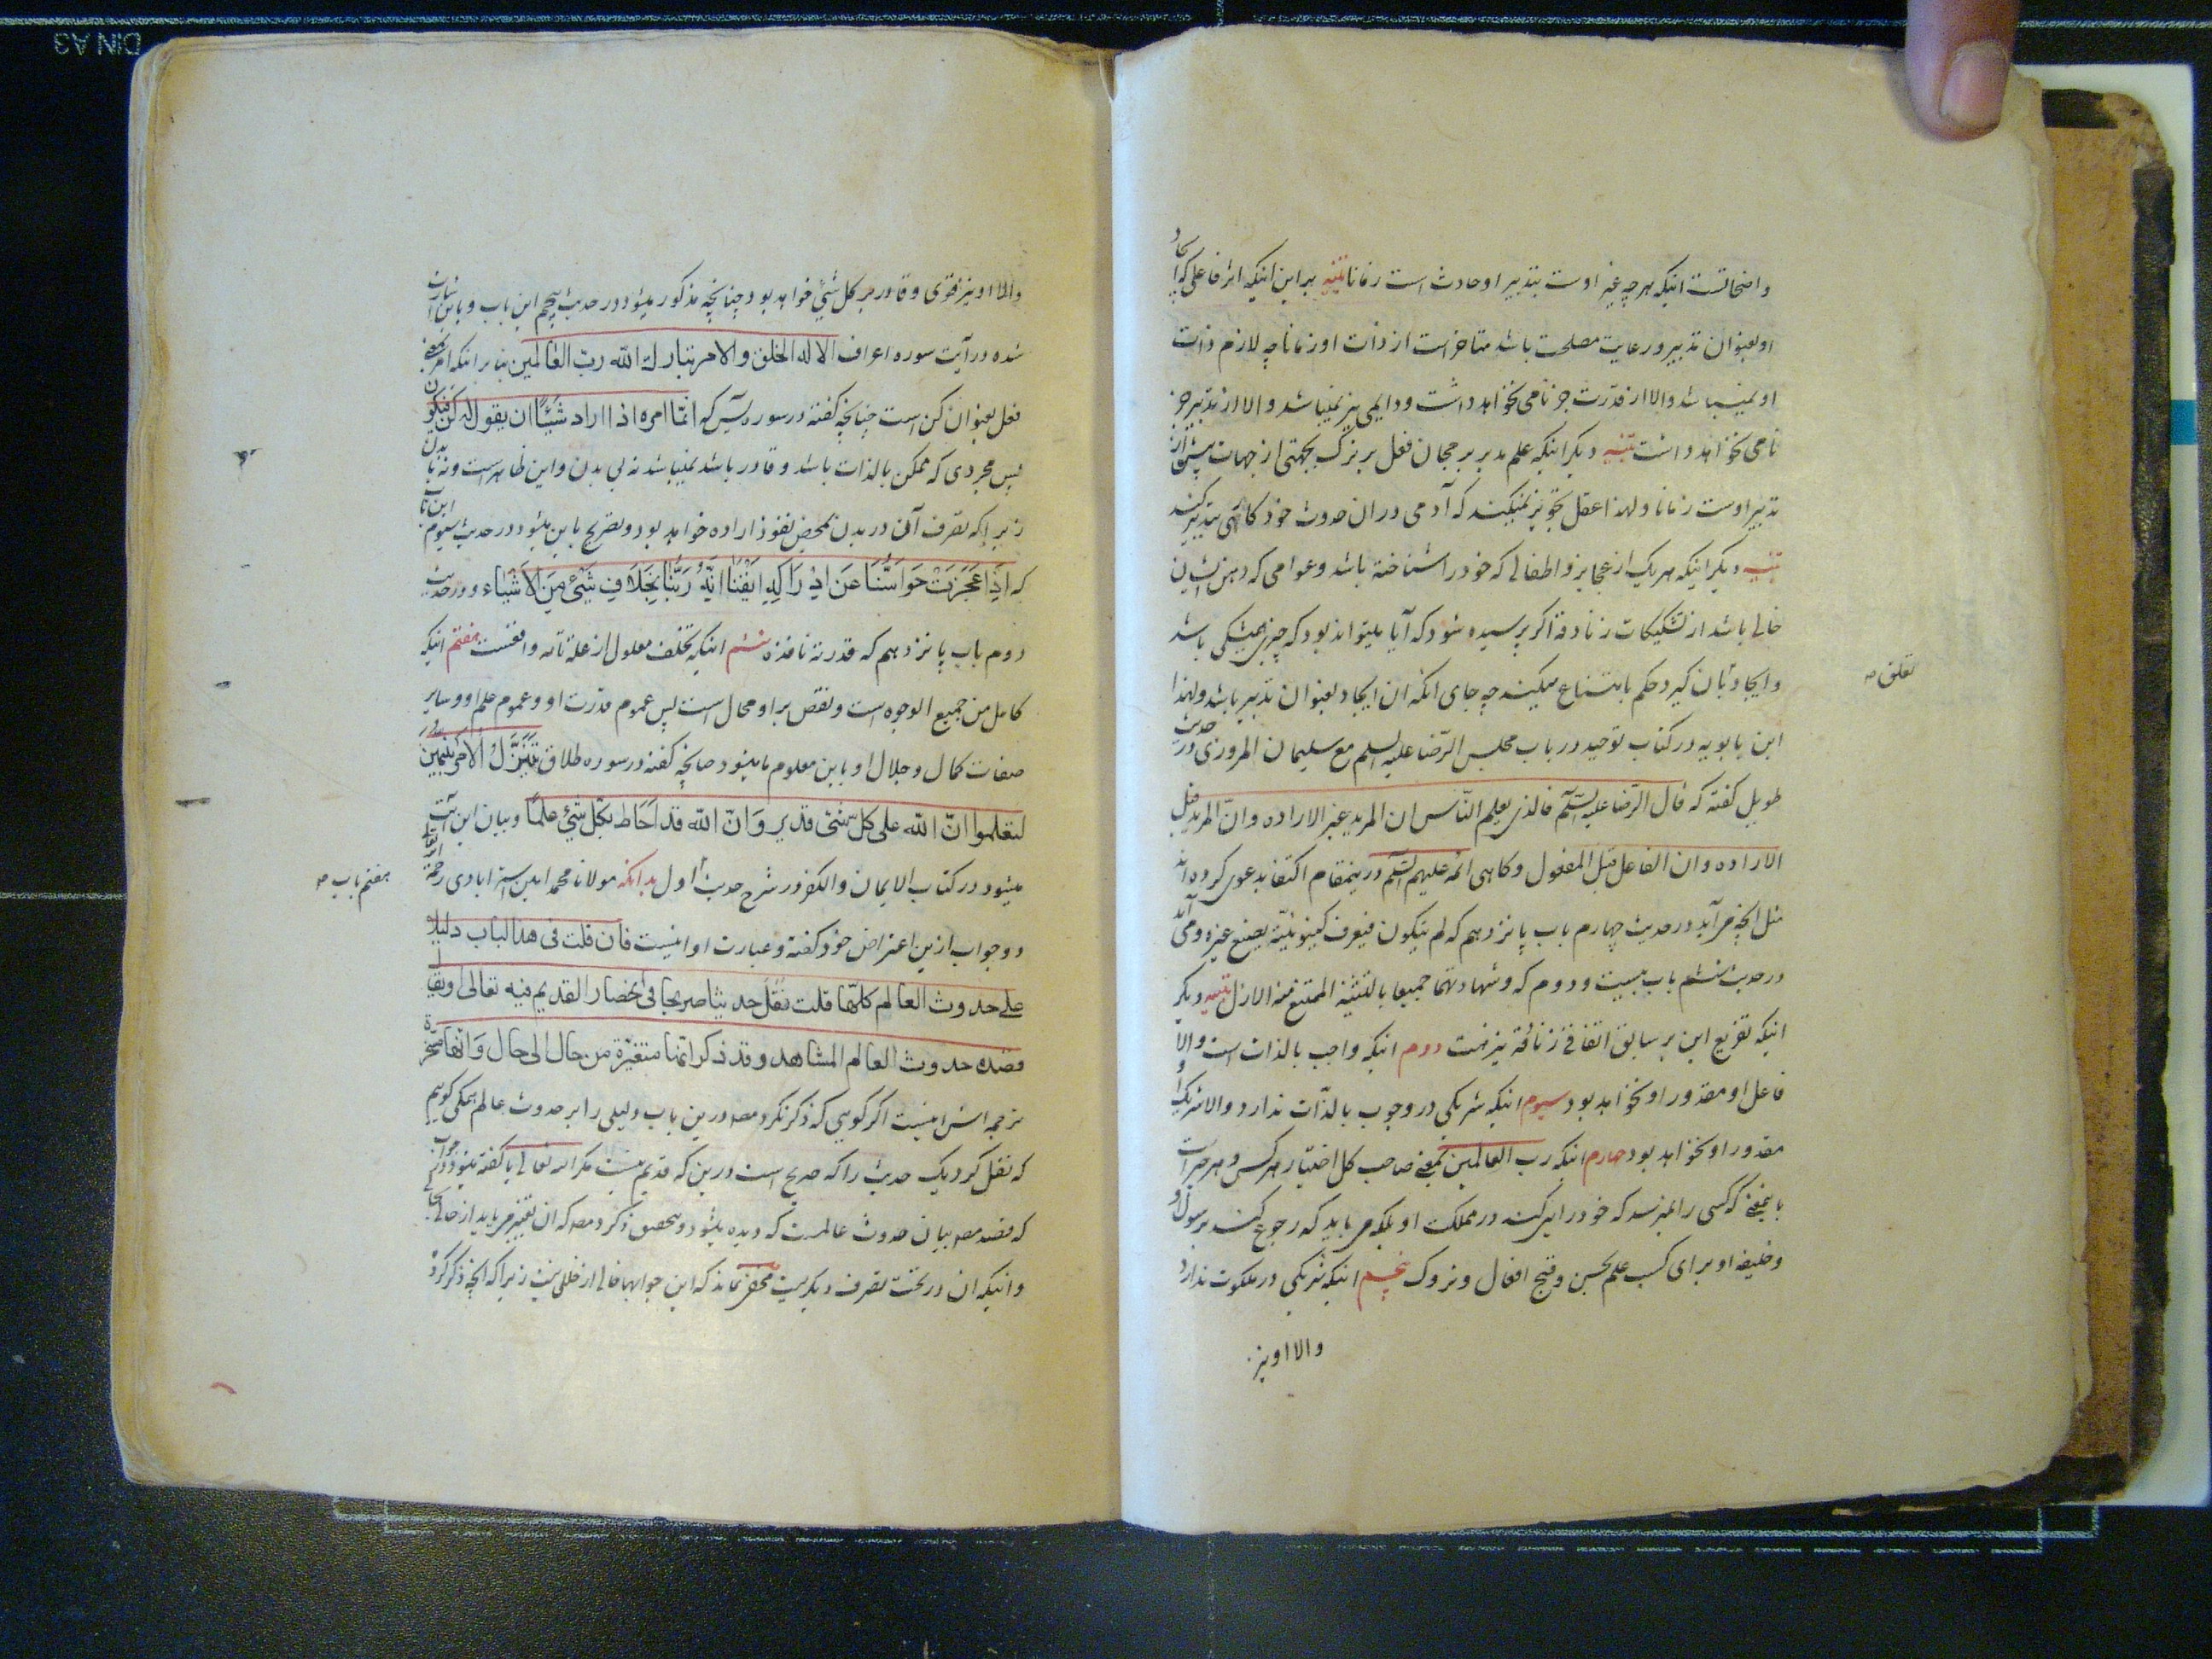 DIN A3
واضحاتست اینکه هر چه غیر اوست بتدبیر او حادث است زمانا تنبیه بر این اینکه اثر فاعلی که ایجاد
او بعنوان تدبیر و رعایت مصلحت باشد متاخر است از ذات او زمانا چه لازم ذات
او نمیباشد والا از قدرت جز نامی نخواهد داشت و دایمی نیز نمیباشد والا از تدبیر جز
نامی نخواهد داشت تنبیه دیگر اینکه علم مدبر برجحان فعل بر ترک بجهتی از جهات پیش از
تدبیر اوست زمانا ولهذا عقل تجویز نمیکند که آدمی در ان حدوث خود کاهی تدبیر کند
تنبیه دیگر اینکه هر یک از عجایز و اطفالی که خود را شناخته باشد و عوامی که ذهن ایشان
خالی باشد از تشکیکات زنادقه اگر پرسیده شود که آیا میتواند بود که چیزی همیشکی باشد
وایجاد بآن گیرد حکم بامتناع میکند چه جای انکه ان ایجاد بعنوان تدبیر باشد ولهذا
تعلق صه
ابن بابویه در کتاب توحید در باب مجلس الرّضا علیه السلم مع سلیمان المروزی در حدیث
طویل کفته که قال الرّضا علیه السّلم فالذی یعلم النّاس ان المرید غیر الاراده وانّ المرید قبل
الاراده وان الفاعل قبل المفعول وکاهی ائمه علیهم السّلم در ینمقام اکتفا بدعوی کرده اند
مثل انچه می آید در حدیث چهارم باب پانزدهم که لم یتکون فیعرف کینونیّته بصنع غیره ومی آید
در حدیث ششم باب بیست ودوم که وشهادتهما جمیعا بالتثنیة الممتنع منه الازل تنبیه دیگر
اینکه تفریع این بر سابق اتفاقی زنادقه نیز هست دوم اینکه واجب بالذات است والّا
فاعل او مقدور او نخواهد بود سیوم اینکه شریکی در وجوب بالذّات ندارد والا شریک او
مقدور او نخواهد بود چهارم اینکه رب العالمین بمعنی صاحب کل اختیار هر کس وهر چیز است
باینمعنی که کسی را نمیرسد که خود را یی کند در مملکت او بلکه می باید که رجوع کند برسول او
وخلیفه او برای کسب علم بحسن وقبح افعال وتروک پنجم اینکه شریکی در ملکوت ندارد
والا او نیز
والا او نیز قوی وقادر بر کل شیْ خواهد بود چنانچه مذکور میشود در حدیث پنجم این باب وباین اشارت
شده در آیت سوره اعراف الا له الخلق والامر تبارك اللّه ربّ العالمین بنا بر اینکه امر بمعنی
فعل بعنوان کن است چنانچه کفته در سوره یٓس که انّما امره اذا اراد شیئًا ان یقول له کن فیکون
پس مجردی که ممکن بالذات باشد وقادر باشد نمیباشد نه بی بدن واین ظاهر است ونه با بدن
زیرا که تصرف آن در بدن بمحض نفوذ اراده خواهد بود وتصریح باین میشود در حدیث سیوم این باب
که اِذَا عَجَزَتْ حَوَاسُّنَا عَنْ اِدْرَاكِهِ اَیْقَنَّا اَنَّهُ رَبُّنَا بِخِلَافِ شَیْءٍ مِنَ الْاَشْیَاءِ ودر حدیث
دوم باب پانزدهم که قدرته نافذة ششم اینکه تخلف معلول از علة تامه واقعست هفتم اینکه
کامل من جمیع الوجوه است ونقص بر او محال است پس عموم قدرت او وعموم علم او وسایر
صفات کمال وجلال او باین معلوم میشود چنانچه کفته در سوره طلاق یَتَنَزَّلُ الْاَمْرُ بَیْنَهُنَّ
لتعلموا انّ اللّه علی کل شئ قدیر وَانّ اللّه قد اَحَاطَ بکل شئ علمًا وبیان این آیت
میشود در کتاب الایمان والکفر در شرح حدیث اول بدانکه مولانا محمد امین استرابادی رحمه اللّه تعالی
هفتم باب صه
دو جواب ازین اعتراض خود کفته وعبارت او اینست فان قلت فی هذا الباب دلیلا
علی حدوث العالم کلّها قلت نقل حدیثا صریحا فی انحصار القدیم فیه تعالی او یقال
قصده حدوث العالم المشاهد وقد ذکر انّها متغیّرة من حال الی حال وَانّها مسخّرة
ترجمه اش اینست اگر کویی که ذکر نکرد مصه درین باب دلیلی را بر حدوث عالم همگی کویم
که نقل کرد یک حدیث را که صریح است درین که قدیم نیست مکر الله تعالی یا کفته میشود در جواب
که قصد مصه بیان حدوث عالمست که دیده میشود وبتحقیق ذکر کرد مصه که ان تغییر می یابد از حالی بحالی
واینکه ان در تحت تصرف دیگریست مخفی نماند که این جوابها خالی از خللی نیست زیرا که انچه ذکر کرد